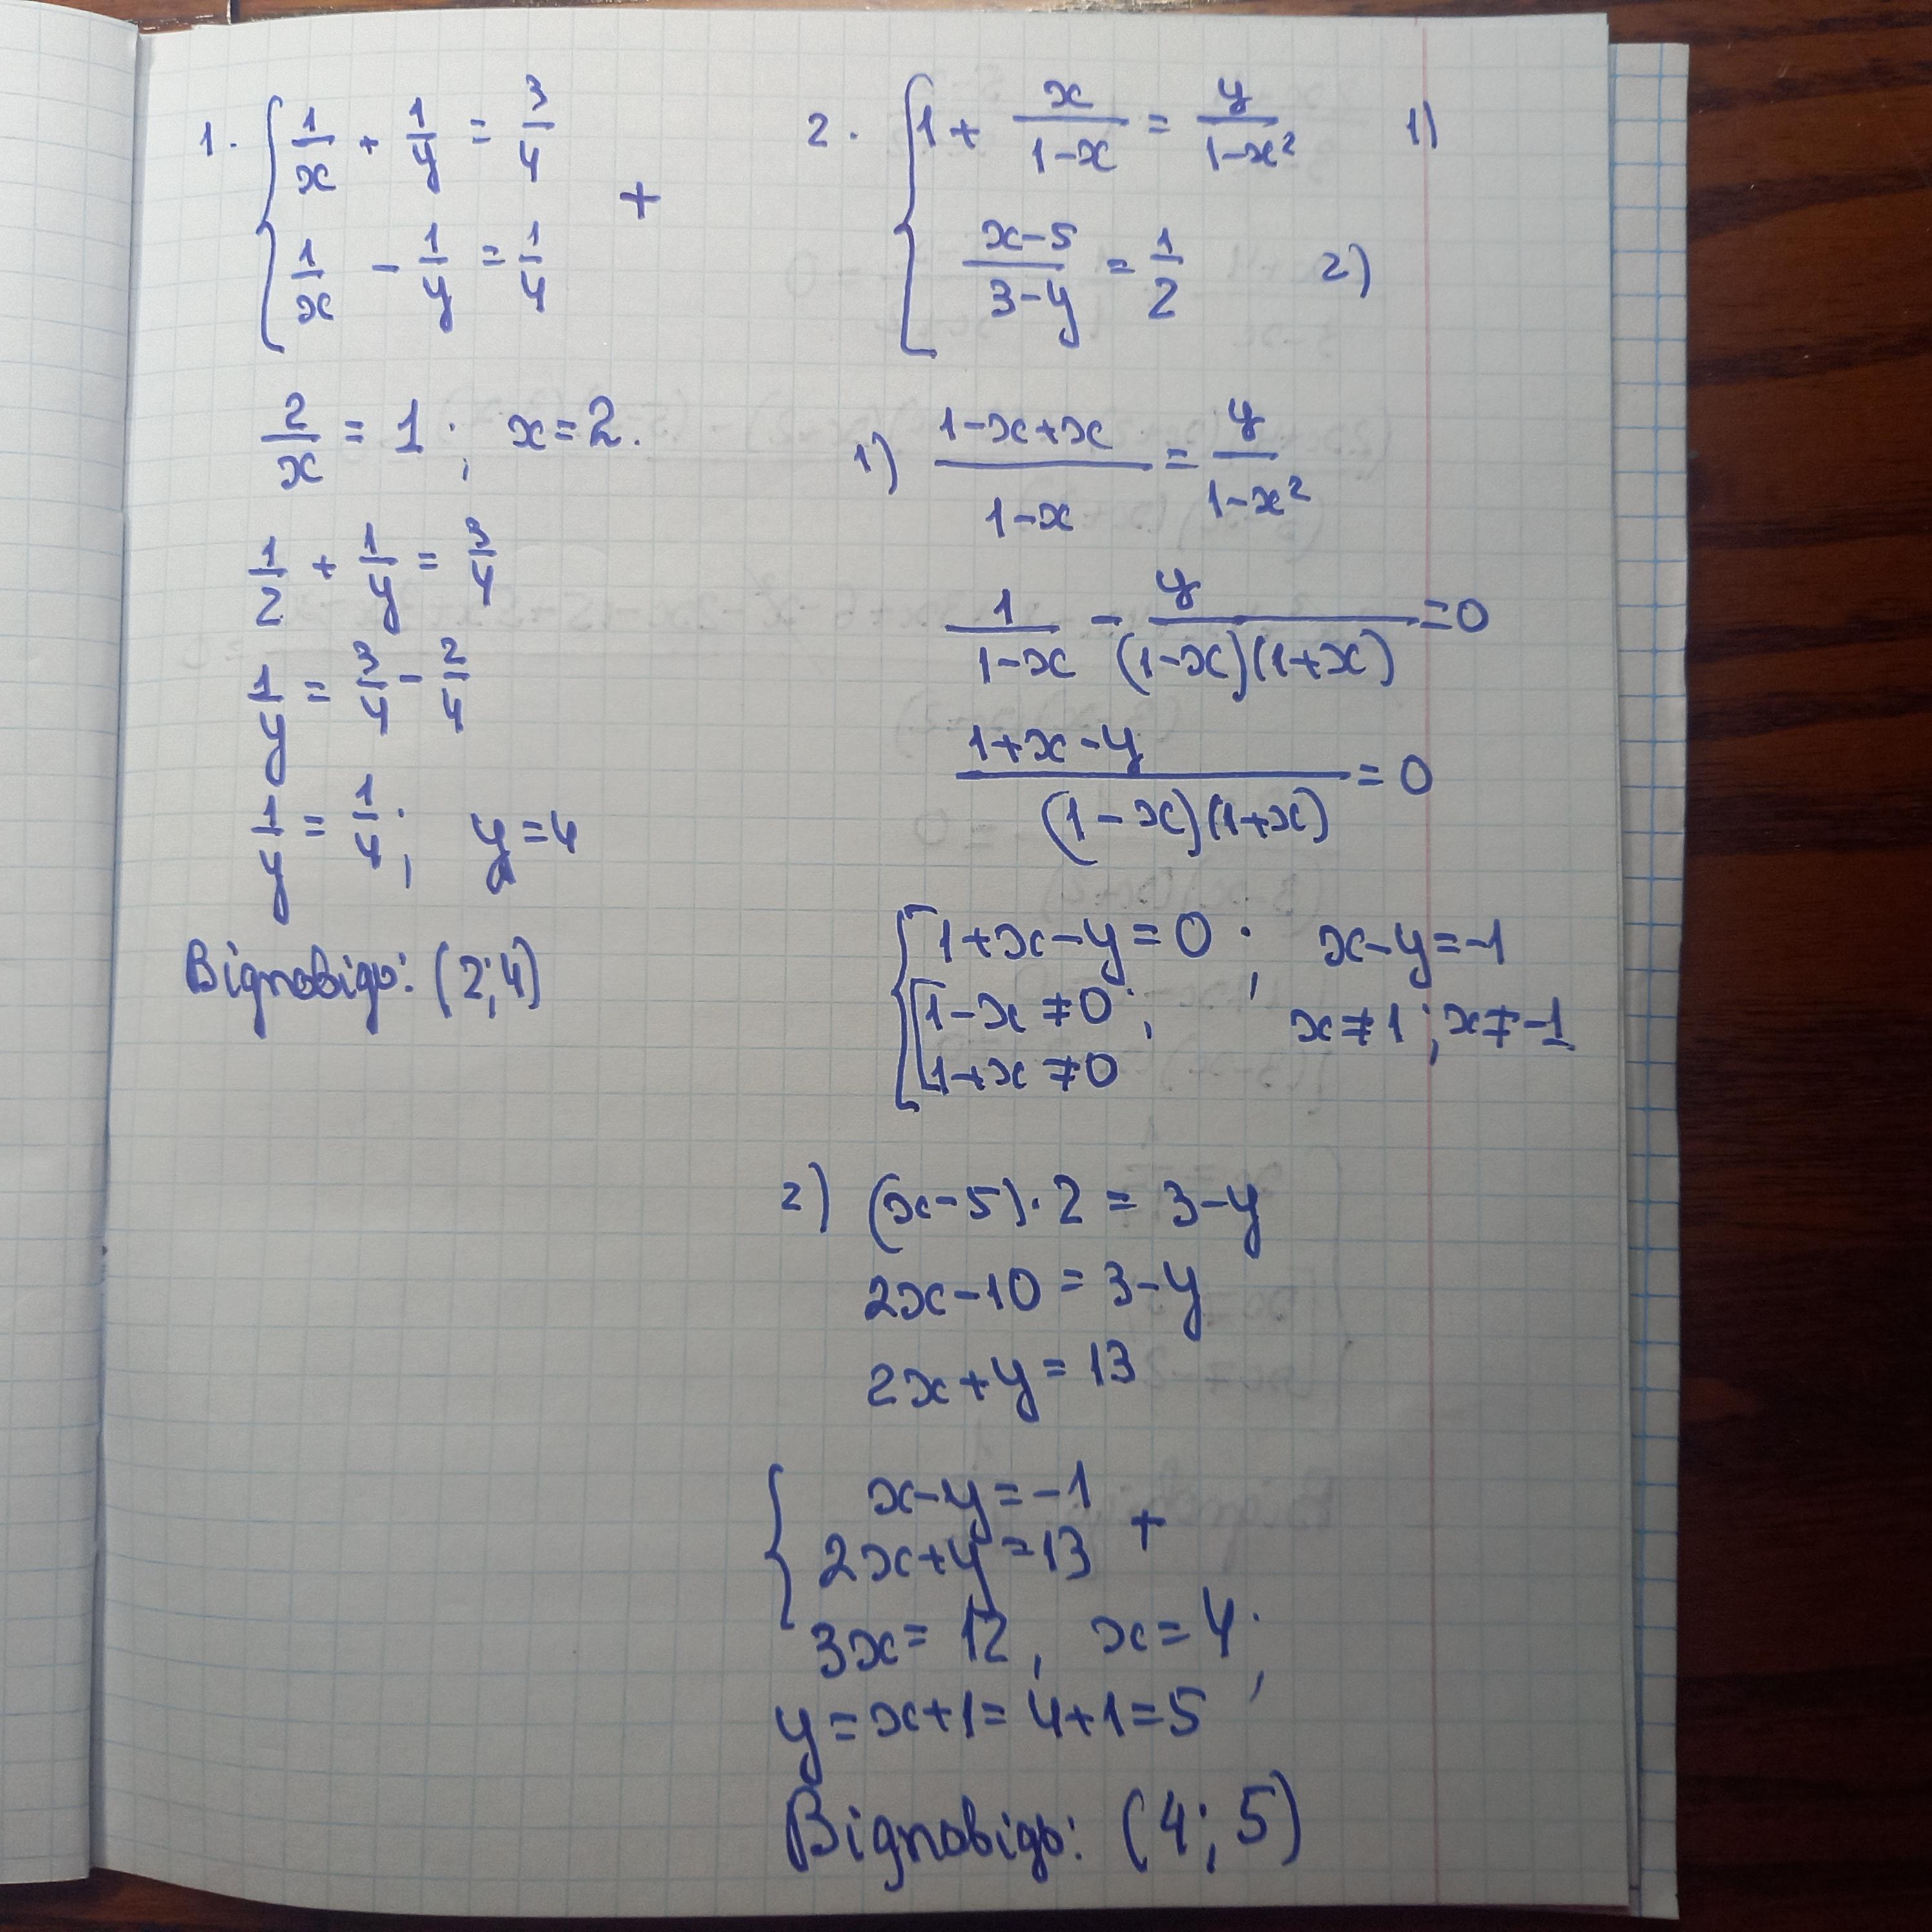 1. { 1/x + 1/y = 3/4
1/x - 1/y = 1/4 +
2/x = 1; x=2.
1/2 + 1/y = 3/4
1/y = 3/4 - 2/4
1/y = 1/4; y=4
Відповідь: (2;4)
2. { 1 + x/(1-x) = y/(1-x²) 1)
(x-5)/(3-y) = 1/2 2)
1) (1-x+x)/(1-x) = y/(1-x²)
1/(1-x) - y/((1-x)(1+x)) = 0
(1+x-y)/((1-x)(1+x)) = 0
{ 1+x-y=0; x-y=-1
[ 1-x≠0; x≠1; x≠-1
1+x≠0
2) (x-5)·2 = 3-y
2x-10 = 3-y
2x+y = 13
{ x-y=-1
2x+y=13 +
3x=12, x=4;
y=x+1=4+1=5
Відповідь: (4; 5)